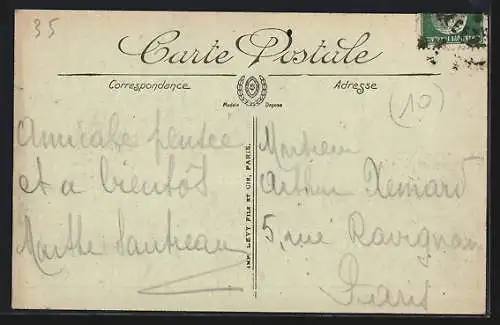 35
Carte Postale
Correspondance
Adresse
Modèle Déposé
(10)
Amicale pensée
et a bientôt
Marthe
Monsieur
Arthur
5, rue Ravignan
Paris
IMP. LEVY FILS ET CIE, PARIS.